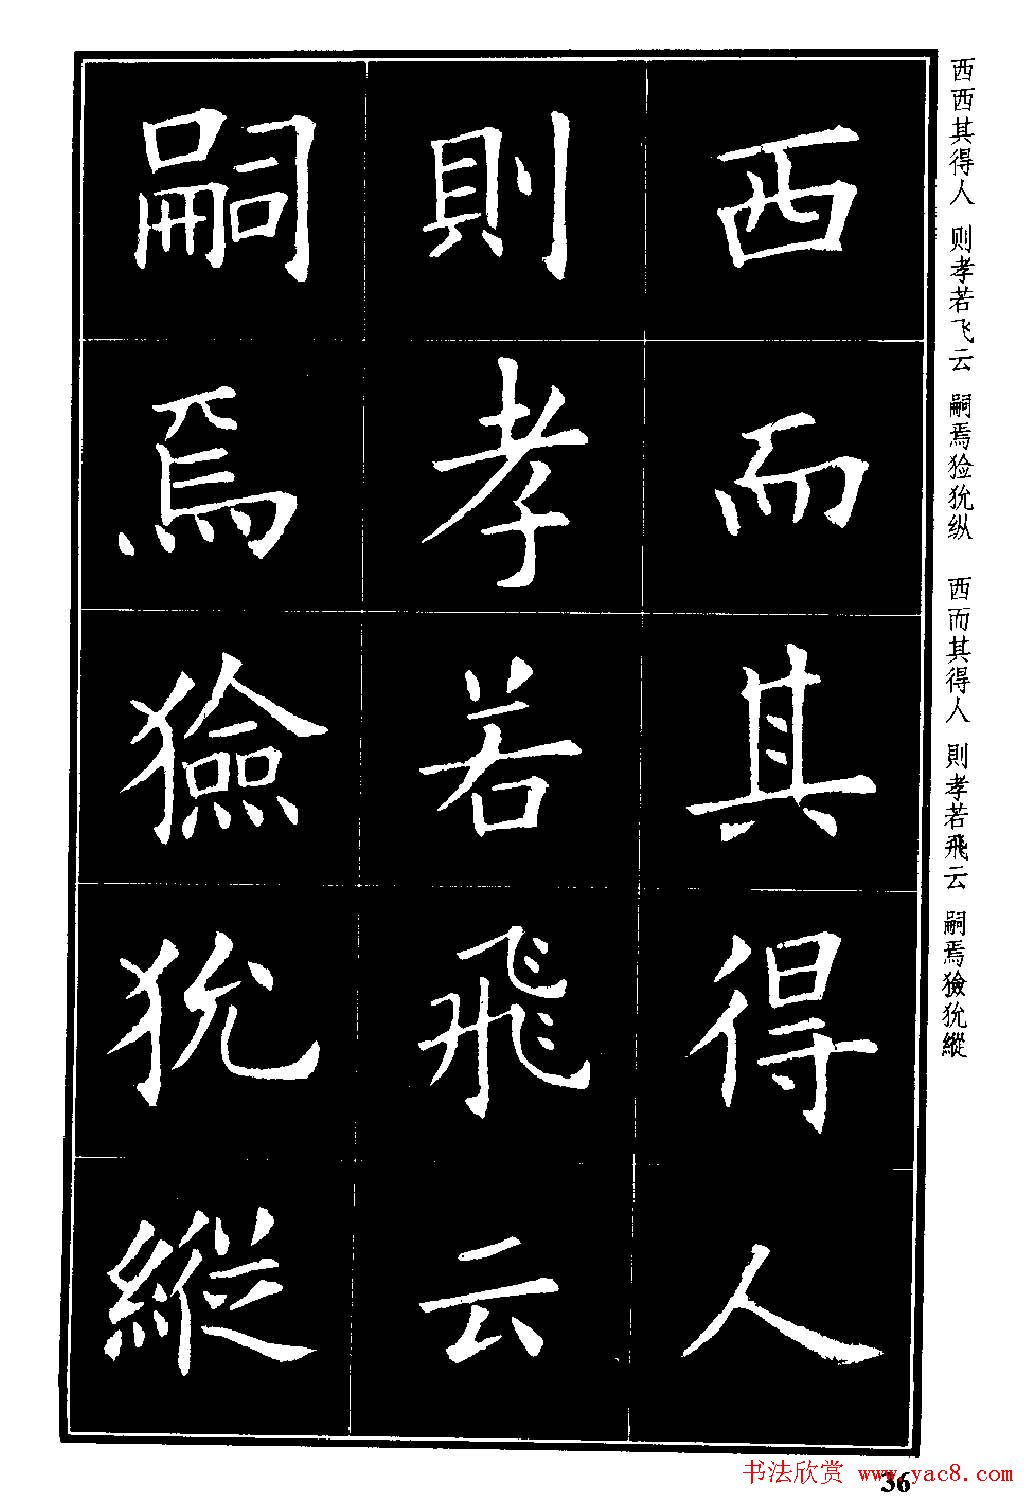 西西其得人 则孝若飞云 嗣焉猃狁纵 西而其得人 則孝若飛云 嗣焉獫狁縱
西而其得人
則孝若飛云
嗣焉獫狁縱
书法欣赏 www.yac8.com
36